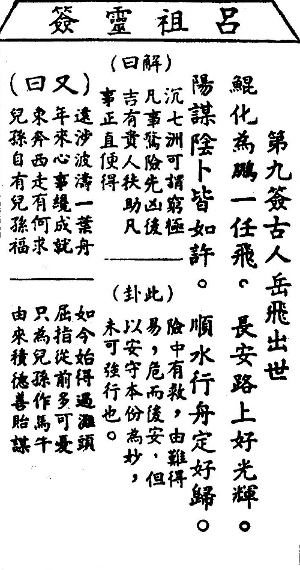 呂祖靈簽
第九簽古人岳飛出世
鯤化為鵬一任飛。長安路上好光輝。
陽謀陰卜皆如許。順水行舟定好歸。
(解曰)
沉七洲可謂窮極
凡事驚險先凶後
吉有貴人扶助凡
事正直使得
(此卦)
險中有救，由難得
易，危而後安，但
以安守本份為妙，
未可強行也。
(又曰)
遠涉波濤一葉舟
年來心事纔成就
東奔西走有何求
兒孫自有兒孫福
如今始得過灘頭
屈指從前多可憂
只為兒孫作馬牛
由來積德善貽謀